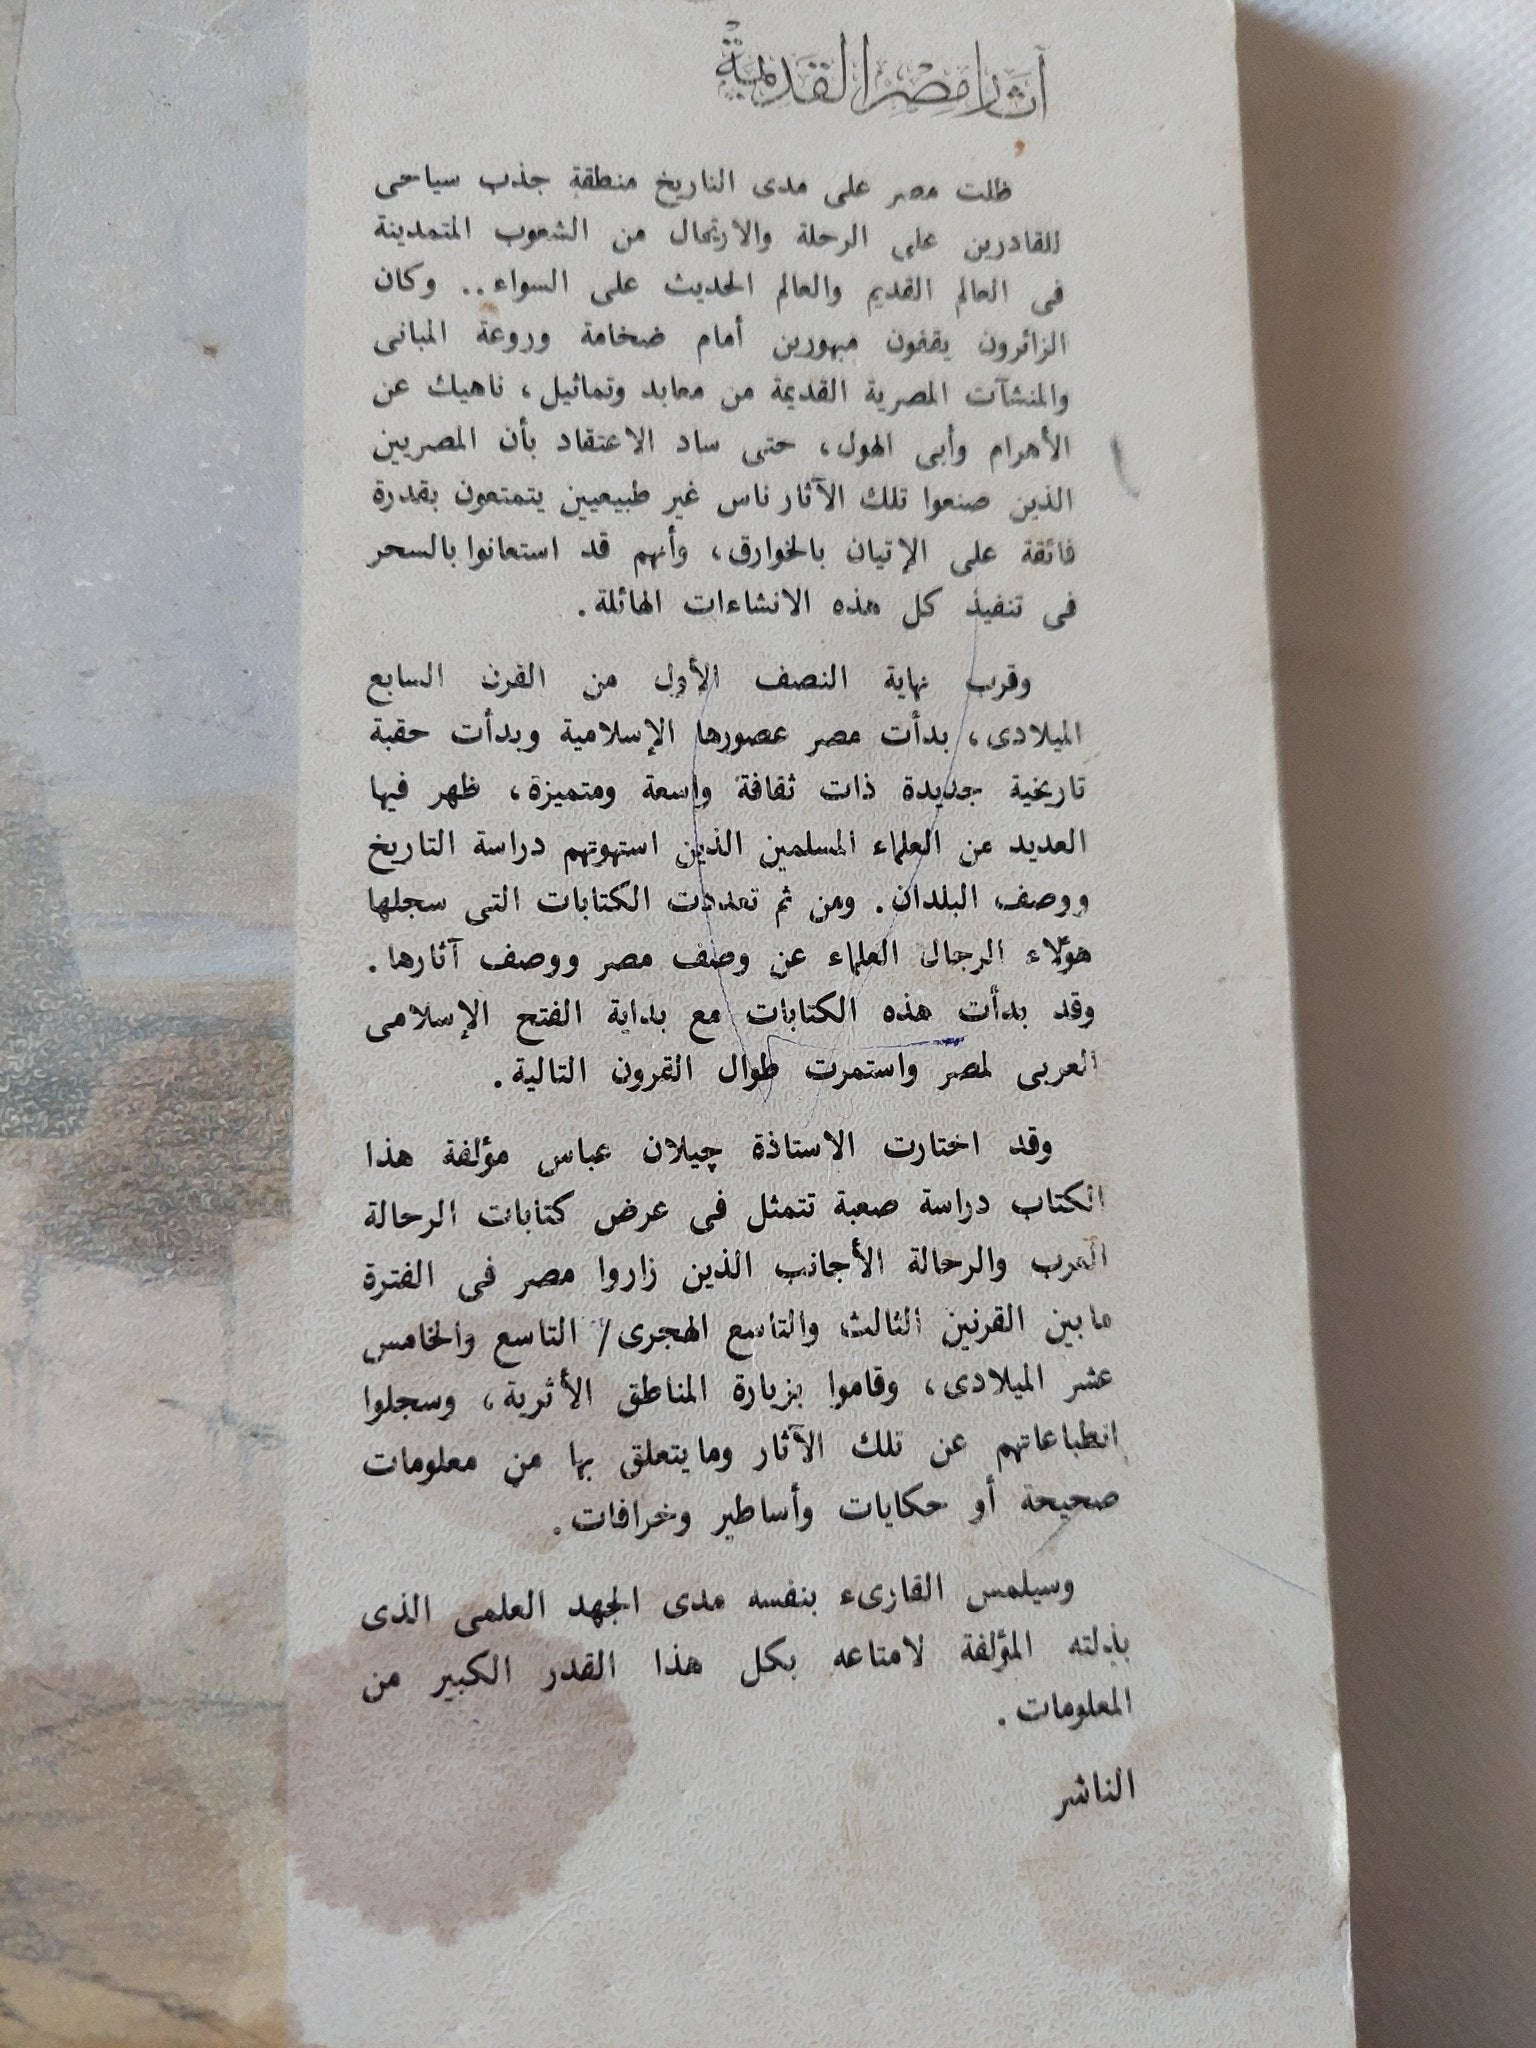 آثار مصر القديمة
ظلت مصر على مدى التاريخ منطقة جذب سياحى
للقادرين على الرحلة والارتحال من الشعوب المتمدينة
فى العالم القديم والعالم الحديث على السواء.. وكان
الزائرون يقفون مبهورين أمام ضخامة وروعة المبانى
والمنشآت المصرية القديمة من معابد وتماثيل، ناهيك عن
الأهرام وأبى الهول، حتى ساد الاعتقاد بأن المصريين
الذين صنعوا تلك الآثار ناس غير طبيعيين يتمتعون بقدرة
فائقة على الإتيان بالخوارق، وأنهم قد استعانوا بالسحر
فى تنفيذ كل هذه الانشاءات الهائلة.
وقرب نهاية النصف الأول من القرن السابع
الميلادى، بدأت مصر عصورها الإسلامية وبدأت حقبة
تاريخية جديدة ذات ثقافة واسعة ومتميزة، ظهر فيها
العديد من العلماء المسلمين الذين استهوتهم دراسة التاريخ
ووصف البلدان. ومن ثم تعددت الكتابات التى سجلها
هؤلاء الرجال العلماء عن وصف مصر ووصف آثارها.
وقد بدأت هذه الكتابات مع بداية الفتح الإسلامى
العربى لمصر واستمرت طوال القرون التالية.
وقد اختارت الاستاذة چيلان عباس مؤلفة هذا
الكتاب دراسة صعبة تتمثل فى عرض كتابات الرحالة
العرب والرحالة الأجانب الذين زاروا مصر فى الفترة
مابين القرنين الثالث والتاسع الهجرى/ التاسع والخامس
عشر الميلادى، وقاموا بزيارة المناطق الأثرية، وسجلوا
انطباعاتهم عن تلك الآثار ومايتعلق بها من معلومات
صحيحة أو حكايات وأساطير وخرافات.
وسيلمس القارىء بنفسه مدى الجهد العلمى الذى
بذلته المؤلفة لامتاعه بكل هذا القدر الكبير من
المعلومات.
الناشر